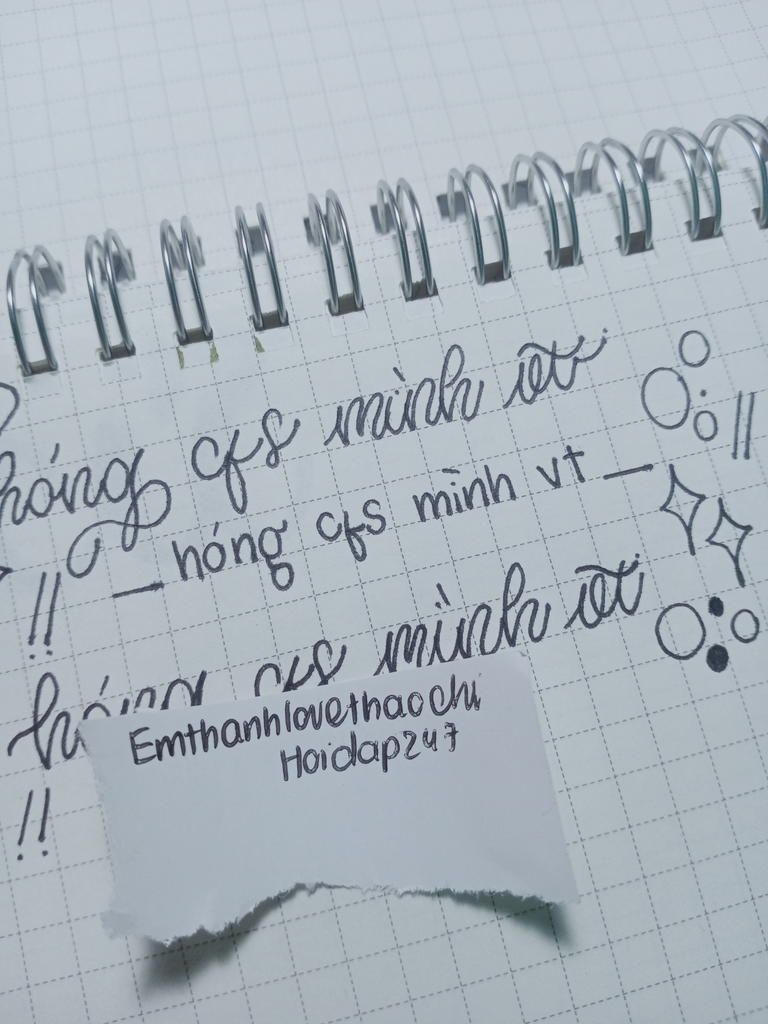 hóng cfs mình vt
!! _ hóng cfs mình vt _ !!
hóng cfs mình vt
Emthanhlovethaochi
Hoidap247
!!